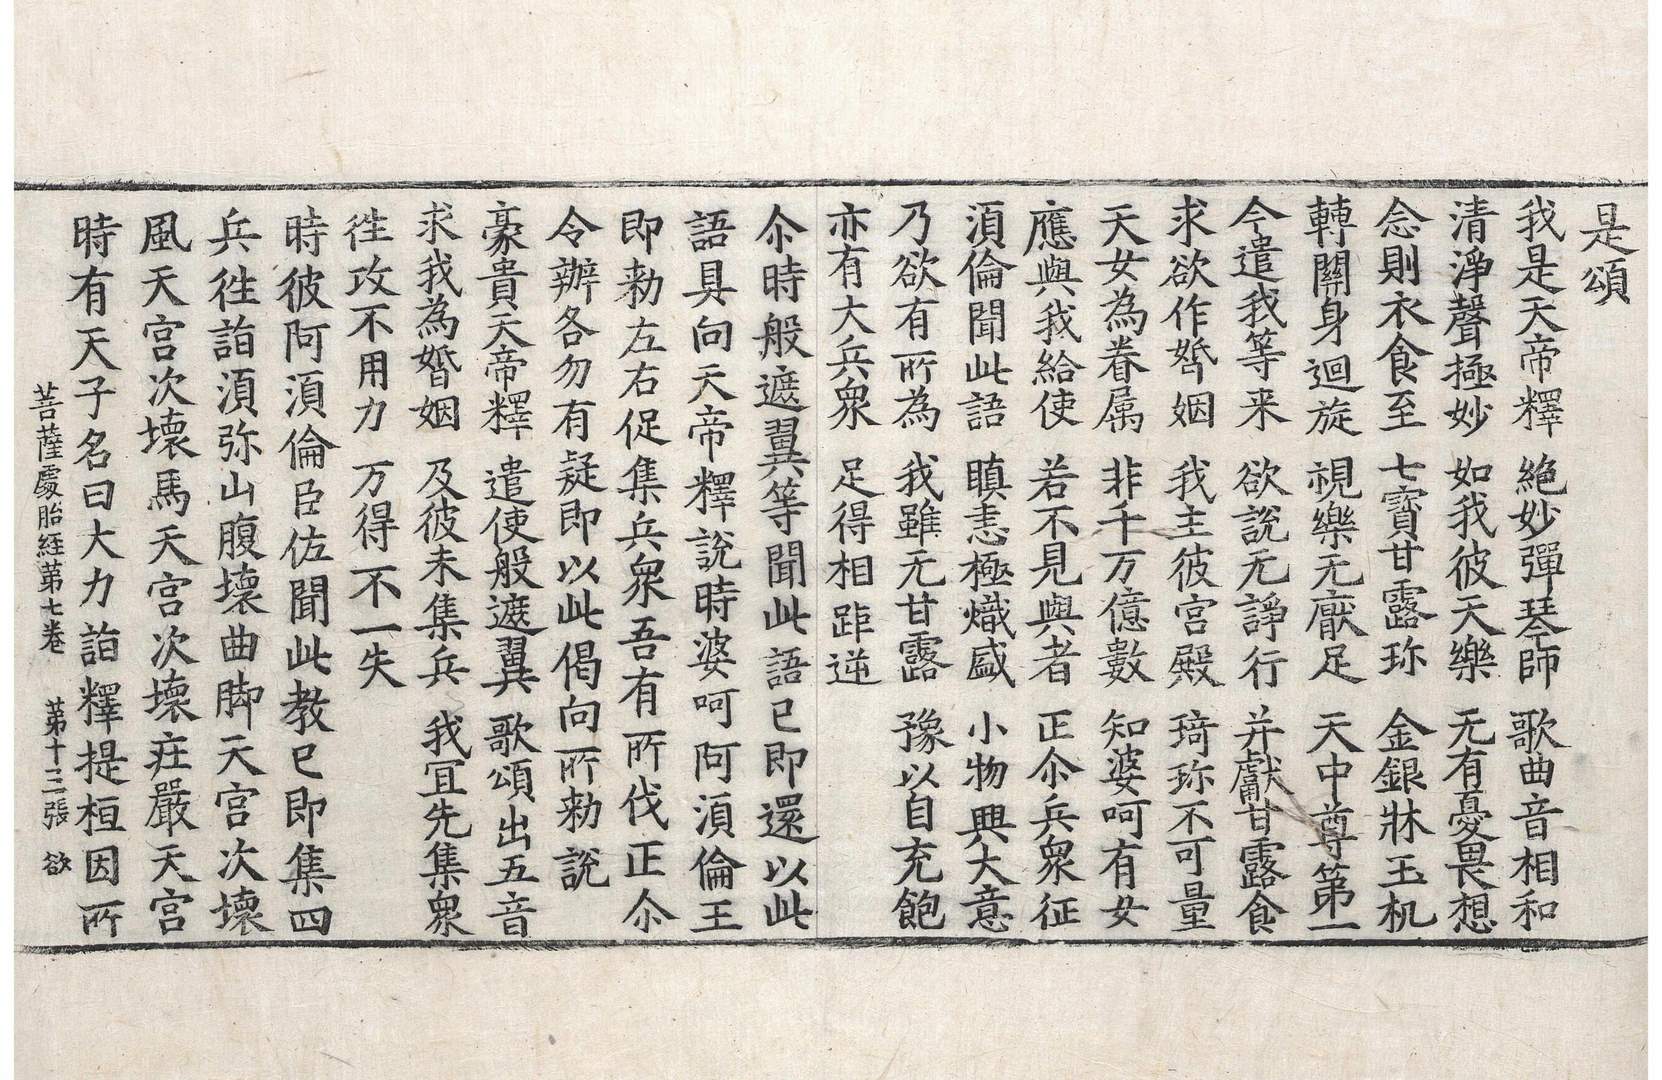 是頌
我是天帝釋 絶妙彈琴師 歌曲音相和
清淨聲極妙 如我彼天樂 无有憂畏想
念則衣食至 七寶甘露珎 金銀牀玉机
轉關身迴旋 視樂无猒足 天中尊第一
今遣我等来 欲說无諍行 并獻甘露食
求欲作婚姻 我主彼宮殿 琦珎不可量
天女為眷属 非千万億數 知婆呵有女
應與我給使 若不見與者 正尒兵衆征
湏倫聞此語 瞋恚極熾盛 小物興大意
乃欲有所為 我雖无甘露 豫以自充飽
亦有大兵衆 足得相距逆
尒時般遮翼等聞此語已即還以此
語具向天帝釋說時婆呵阿湏倫王
即勑左右促集兵衆吾有所伐正尒
令辦各勿有疑即以此偈向所勑說
豪貴天帝釋 遣使般遮翼 歌頌出五音
求我為婚姻 及彼未集兵 我冝先集衆
徃攻不用力 万得不一失
時彼阿湏倫臣佐聞此教已即集四
兵徃詣湏弥山腹壞曲脚天宮次壞
風天宮次壞馬天宮次壞庄嚴天宮
時有天子名曰大力詣釋提桓因所
菩薩處胎經第七卷 第十三張 欲